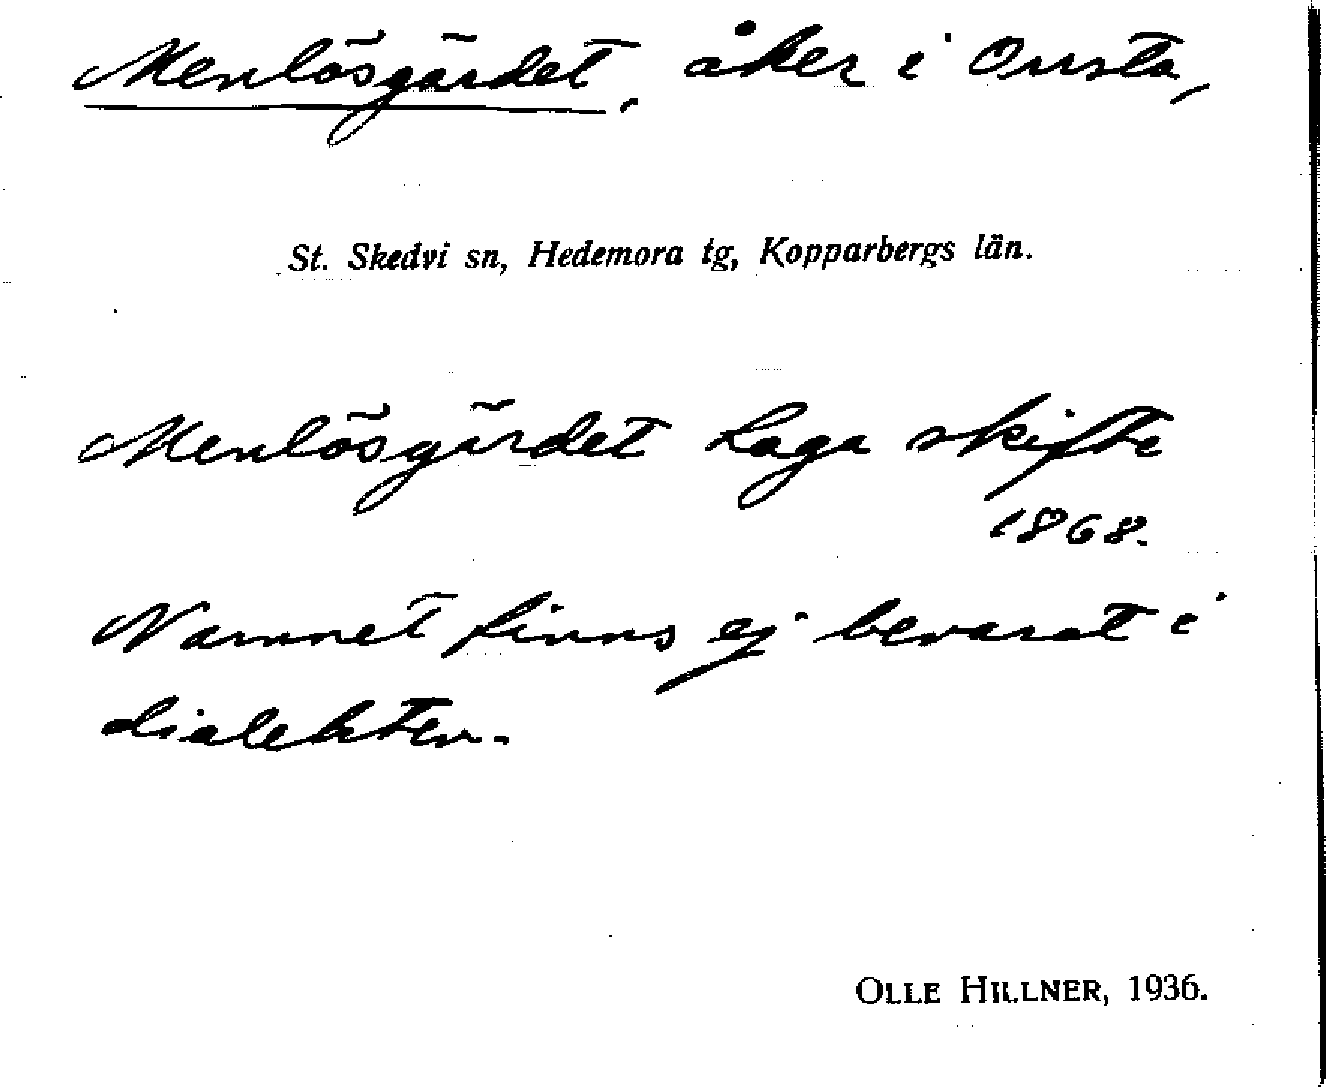 Menlösgärdet, åker i Onsta,
St. Skedvi sn, Hedemora tg, Kopparbergs län.
Menlösgärdet Laga skifte
1868.
Namnet finns ej bevarat i
dialekten.
OLLE HILLNER, 1936.